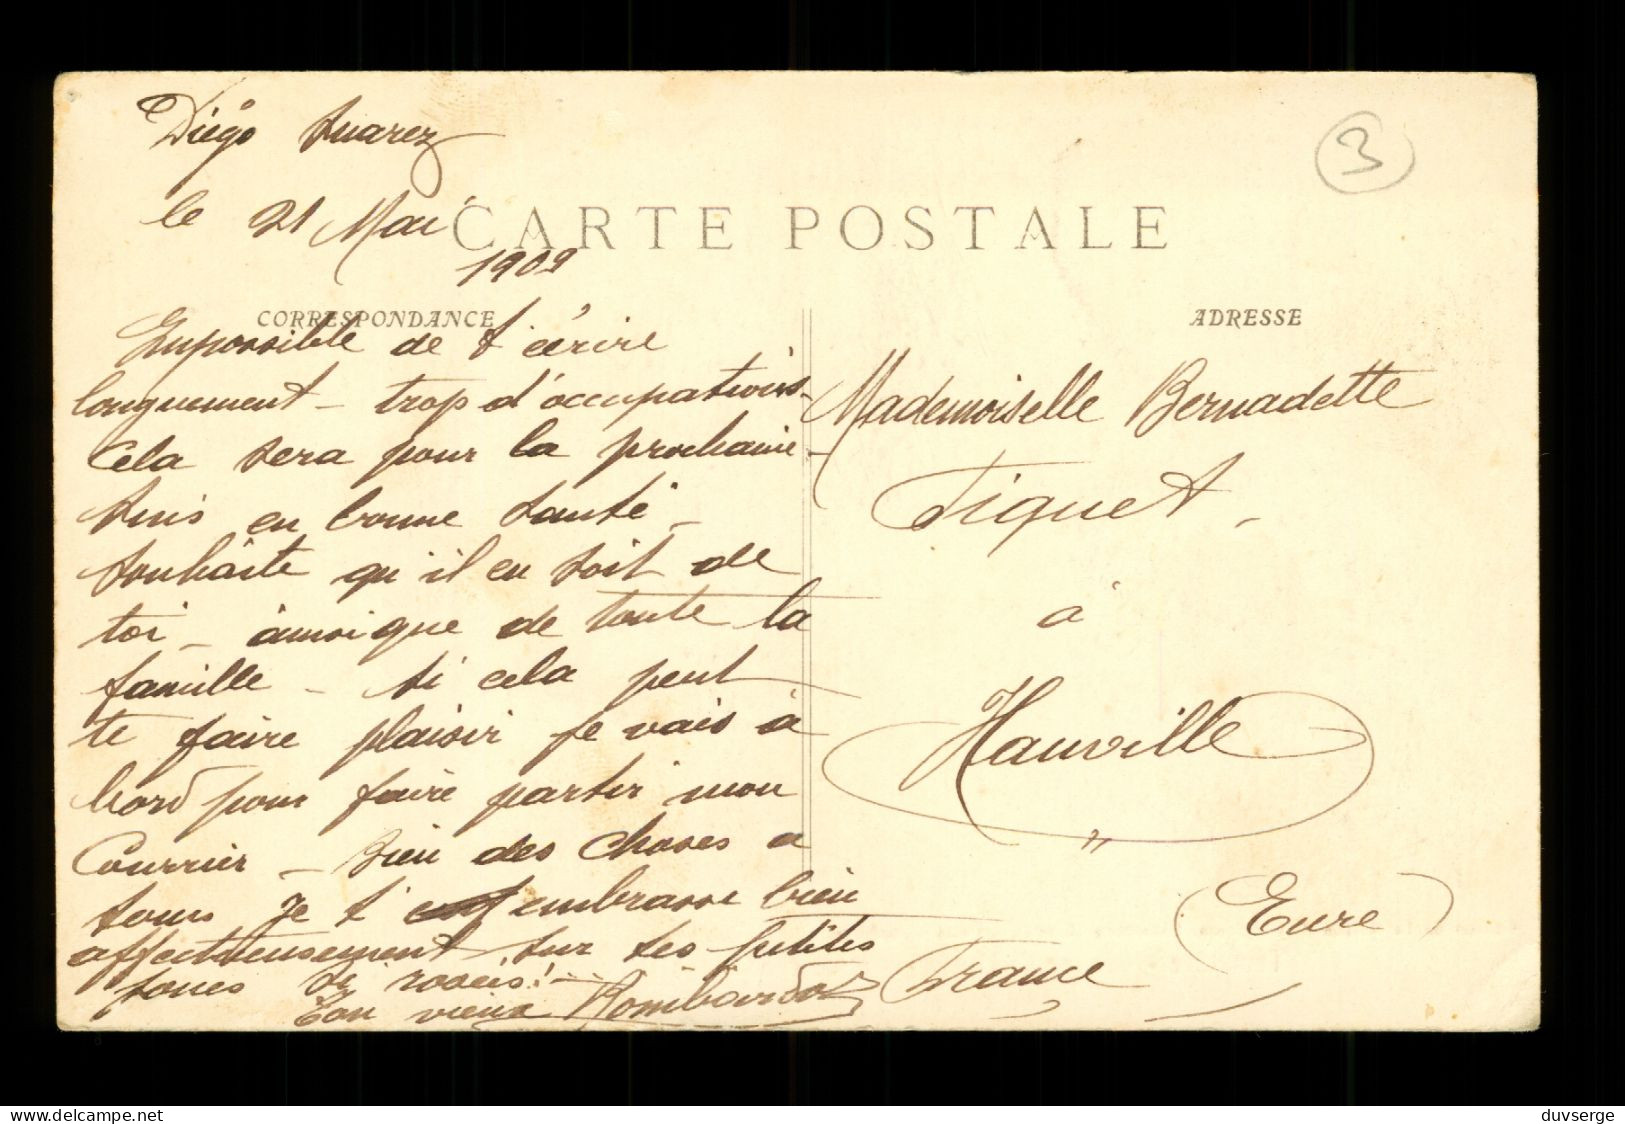 Diégo Suarez
le 21 Mai
1909
CARTE POSTALE
3
CORRESPONDANCE
Impossible de t'écrire
longuement - trop d'occupations -
Cela sera pour la prochaine -
suis en bonne santé -
souhaite qu'il en soit de
toi - ainsi que de toute la
famille - si cela peut
te faire plaisir je vais à
bord pour faire partir mon
Courrier - Bien des choses a
tous Je t' embrasse bien
affectueusement sur tes petites
joues si rosées! -
Ton vieux
ADRESSE
Mademoiselle Bernadette
Tiquet -
à
Hauville
"
(Eure)
France
duvserge